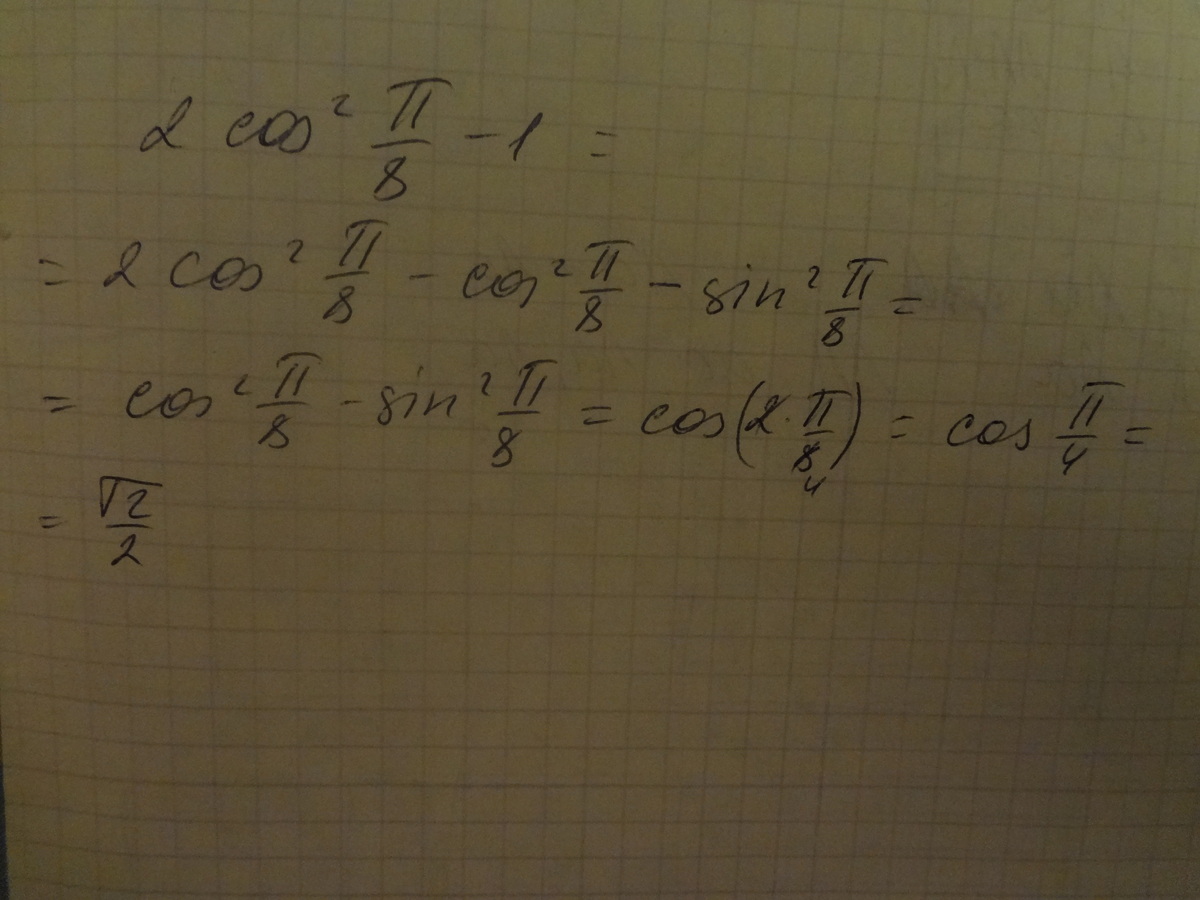 2 cos² π/8 - 1 =
= 2 cos² π/8 - cos² π/8 - sin² π/8 =
= cos² π/8 - sin² π/8 = cos(2 · π/8 4) = cos π/4 =
= √2/2